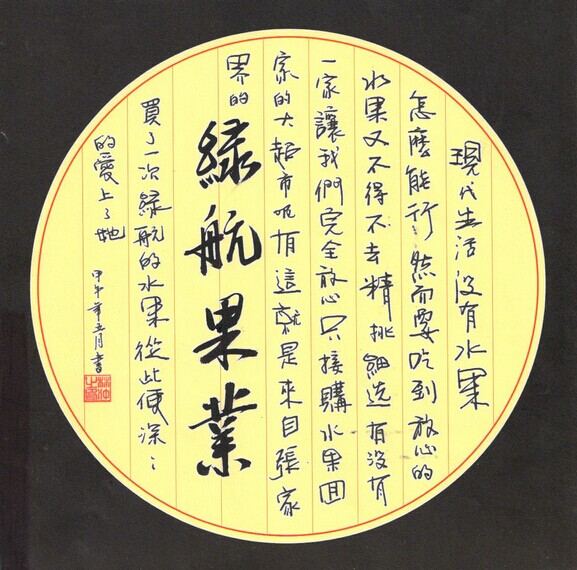 現代生活沒有水果
怎麼能行;然而要吃到放心的
水果又不得不去精挑細选有沒有
一家讓我們完全放心只接購水果囬
家的大超市呢有這就是來自張家
界的
綠航果業
買了一次綠航的水果從此便深:
的愛上了她
甲午年五月書